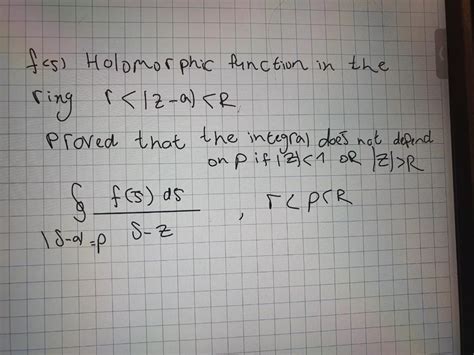 f(ζ) Holomorphic function in the
ring r < |z-a| < R
proved that the integral does not depend
on ρ if |z|<1 OR |z|>R
∮ f(ζ) dζ / ζ-z , r<ρ<R
|ζ-a|=ρ